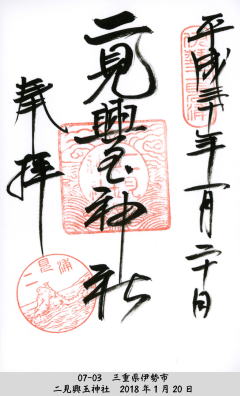 平成三十年一月二十日
二見興玉神社
奉拝
二見浦
07-03 三重県伊勢市
二見興玉神社 2018年1月20日